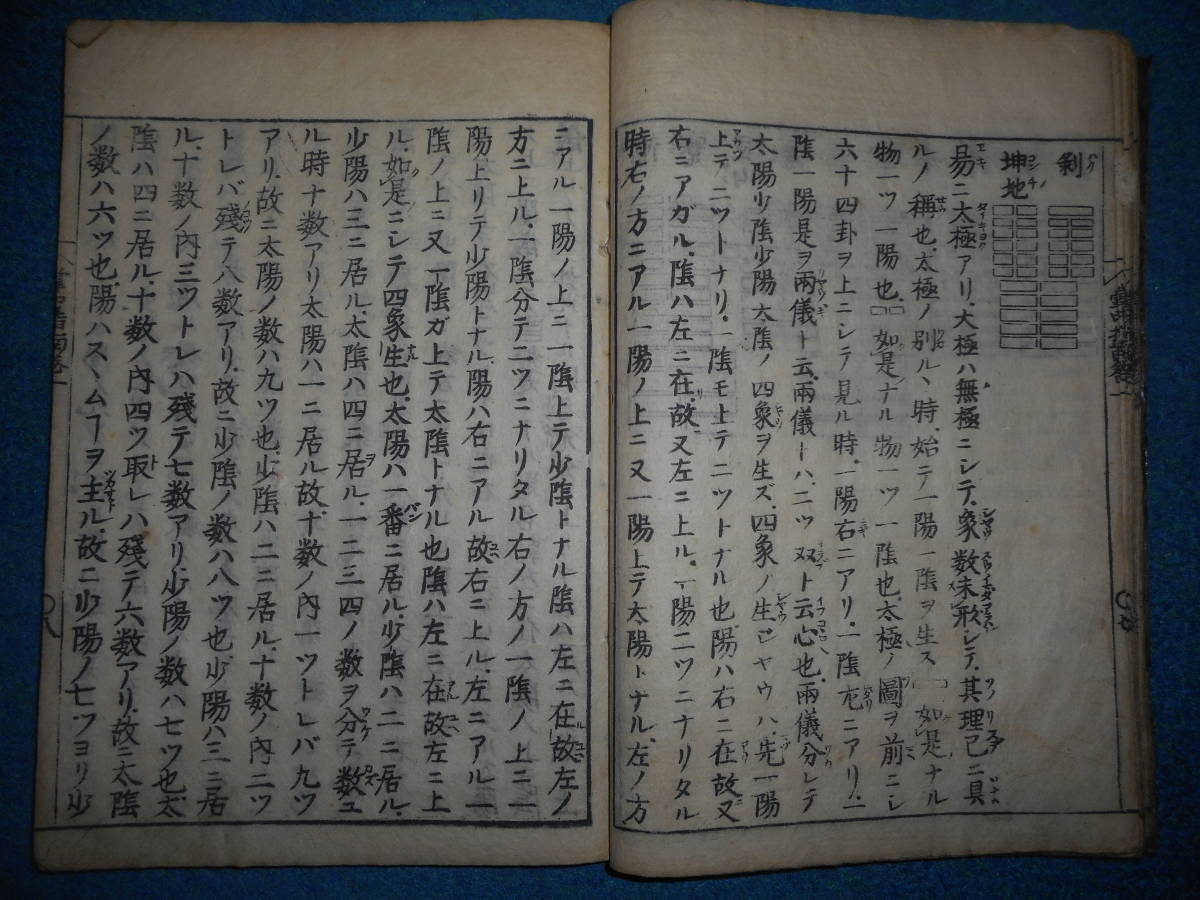 剥
坤地
易ニ太極アリ、大極ハ無極ニシテ、象数未形シテ、其理已ニ具
ルノ称也、太極ノ別ルヽ時、始テ一陽一陰ヲ生ス 如是ナル
物一ツ一陽也、如是ナル物一ツ一陰也、太極ノ圖ヲ前ニシ
六十四卦ヲ上ニシテ見ル時、一陽右ニアリ、一陰左ニアリ、一
陰一陽是ヲ兩儀ト云、兩儀トハ、二ツ双ト云心也、兩儀分レテ
太陽少陰少陽太陰ノ四象ヲ生ズ、四象ノ生シヤウハ、先一陽
上テ二ツトナリ、一陰モ上テ二ツトナル也、陽ハ右ニ在故又
右ニアガル、陰ハ左ニ在、故又左ニ上ル、一陽二ツニナリタル
時右ノ方ニアル一陽ノ上ニ又一陽上テ太陽トナル、左ノ方
ニアル一陽ノ上ニ一陰上テ少陰トナル陰ハ左ニ在故左ノ
方ニ上ル、一陰分テ二ツニナリタル右ノ方ノ一陰ノ上ニ一
陽上リテ少陽トナル、陽ハ右ニアル故右ニ上ル、左ニアル一
陰ノ上ニ又一陰ガ上テ太陰トナル也陰ハ左ニ在故左ニ上
ル、如是ニシテ四象生也、太陽ハ一番ニ居ル、少陰ハ二ニ居ル、
少陽ハ三ニ居ル、太陰ハ四ニ居ル、一二三四ノ数ヲ分テ数ユ
ル時十数アリ太陽ハ一ニ居ル故、十数ノ内一ツトレバ九ツ
アリ、故ニ太陽ノ数ハ九ツ也、少陰ハ二ニ居ル、十数ノ内二ツ
トレバ残テ八数アリ、故ニ少陰ノ数ハ八ツ也少陽ハ三ニ居
ル、十数ノ内三ツトレハ残テ七数アリ少陽ノ数ハ七ツ也太
陰ハ四ニ居ル、十数ノ内四ツ取レハ残テ六数アリ、故ニ太陰
ノ数ハ六ツ也、陽ハスヽムヿヲ主ル、故ニ少陽ノ七ツヨリ少